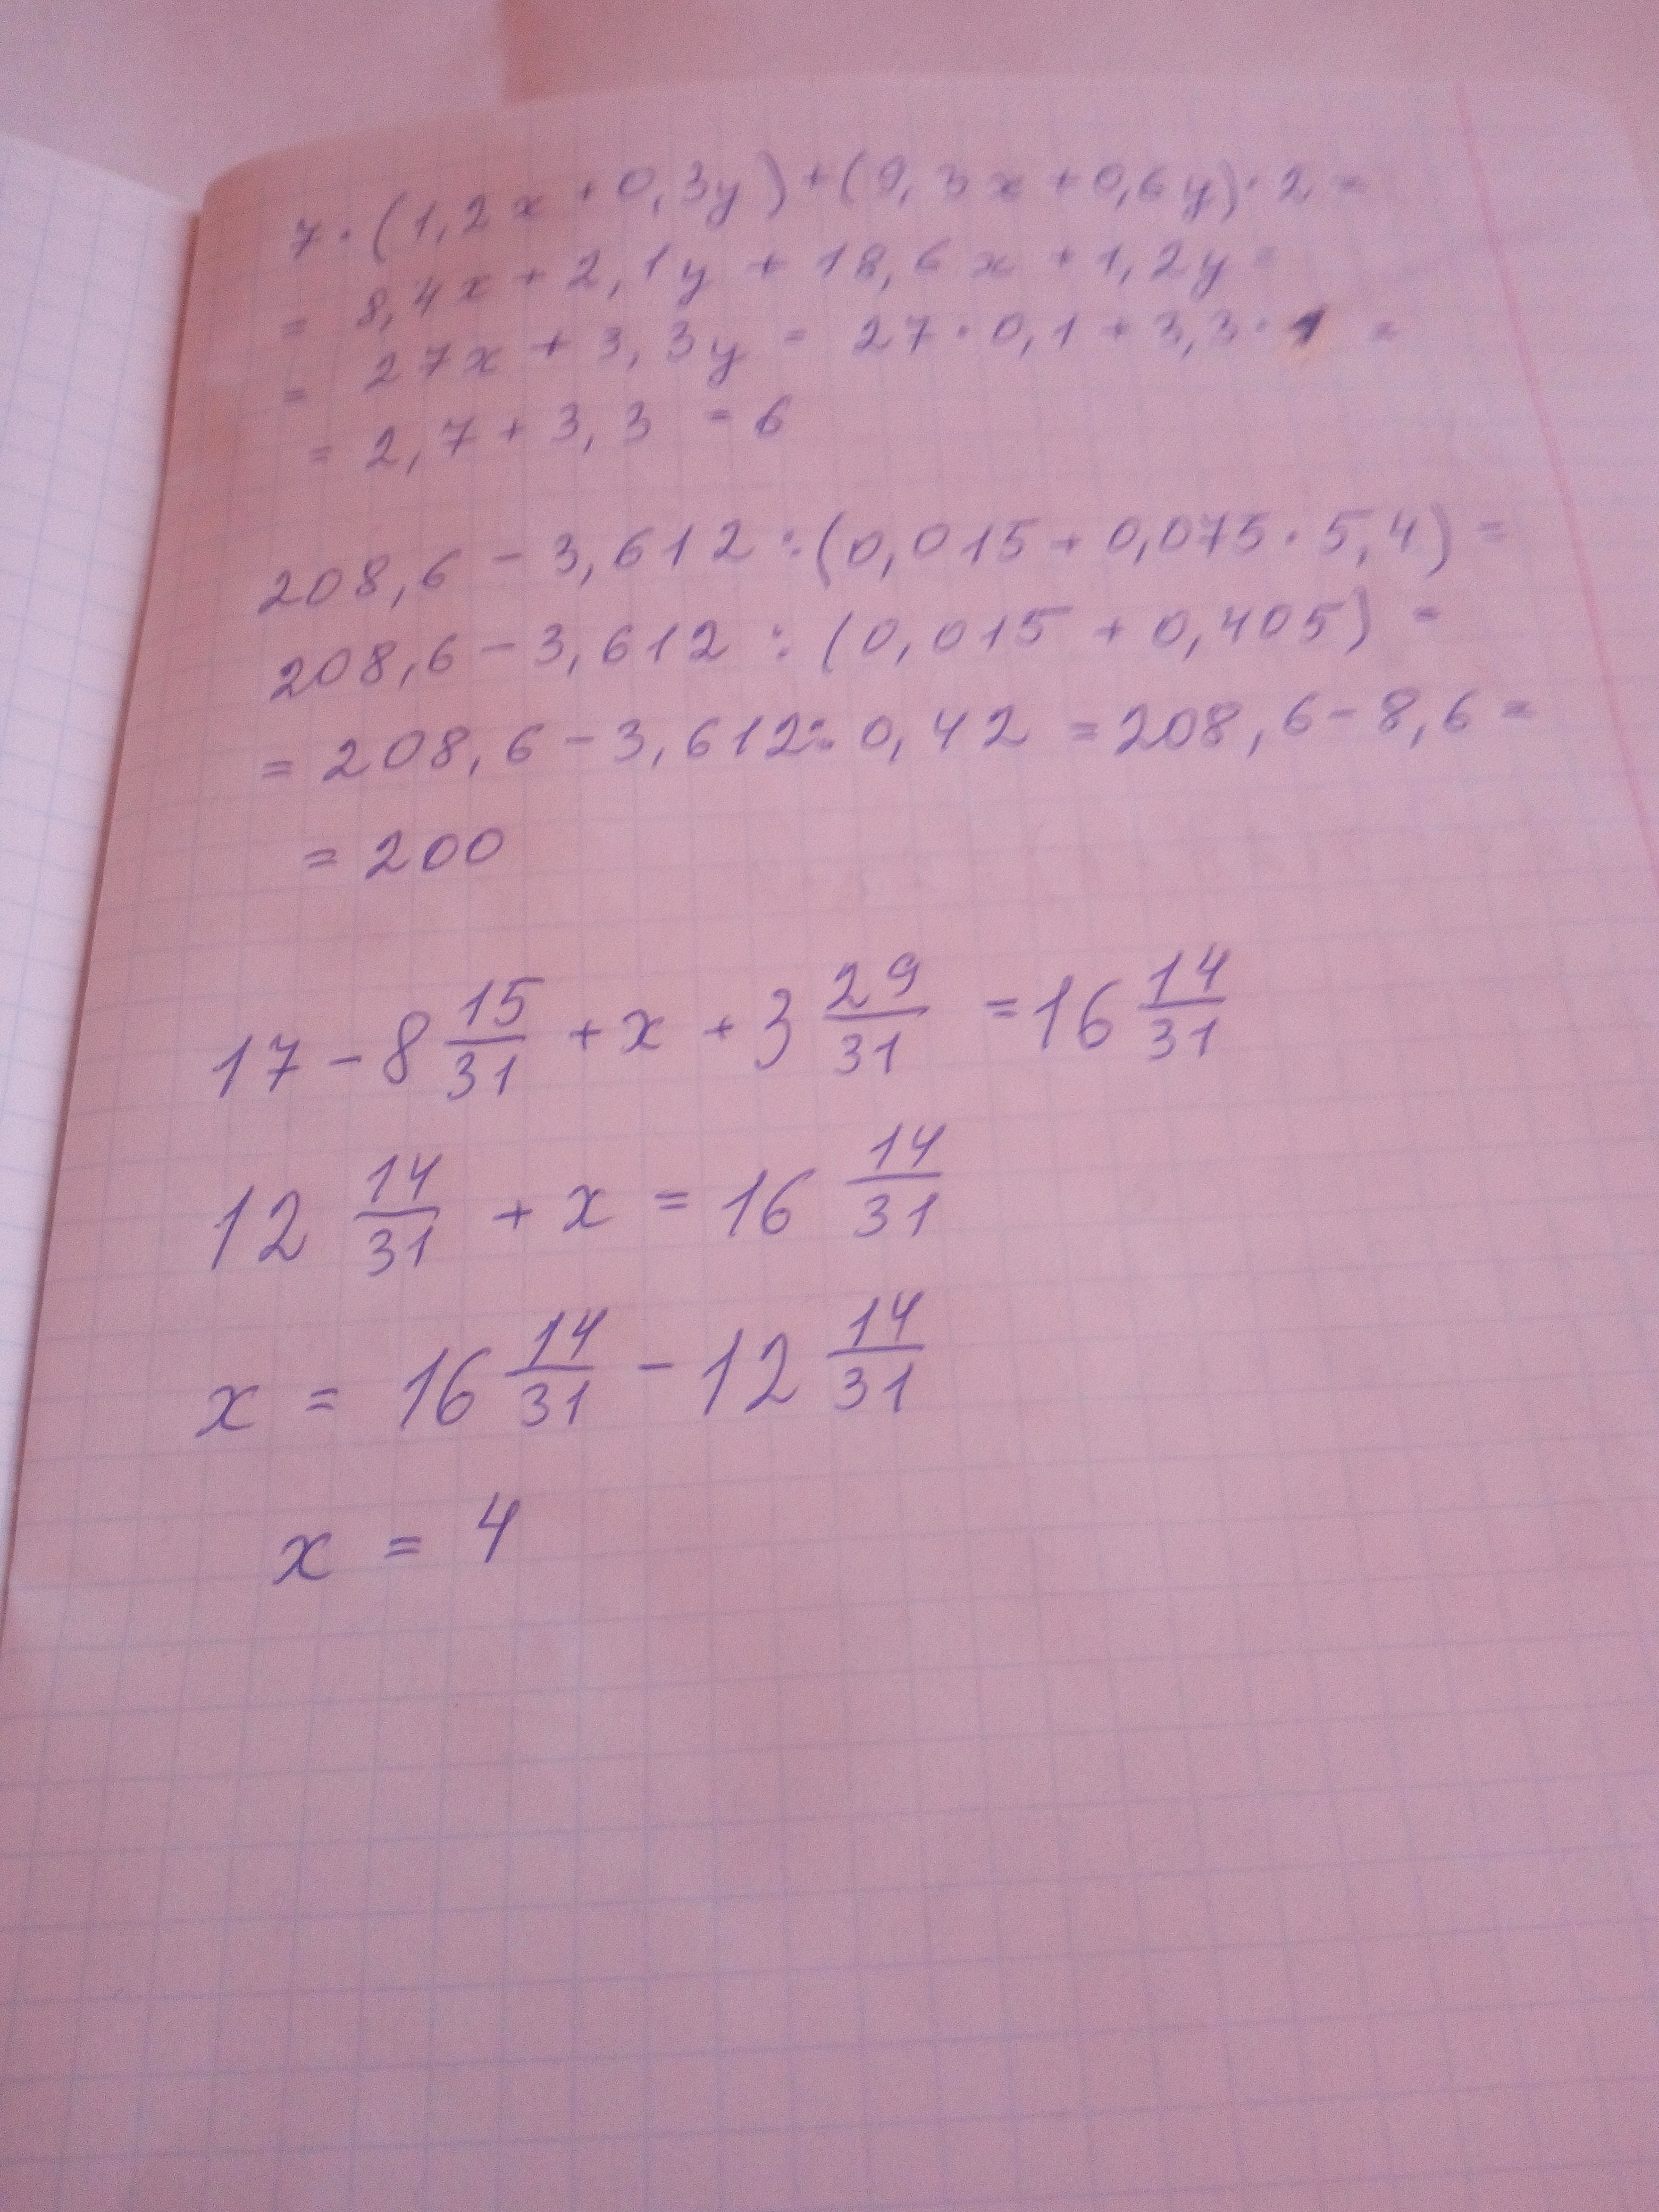 7·(1,2x+0,3y)+(9,3x+0,6y)·2=
= 8,4x+2,1y+18,6x+1,2y=
= 27x+3,3y = 27·0,1+3,3·1 =
= 2,7+3,3 = 6
208,6-3,612:(0,015+0,075·5,4)=
208,6-3,612:(0,015+0,405) =
= 208,6-3,612:0,42 = 208,6-8,6=
= 200
17-8 15/31 + x + 3 29/31 = 16 14/31
12 14/31 + x = 16 14/31
x = 16 14/31 - 12 14/31
x = 4